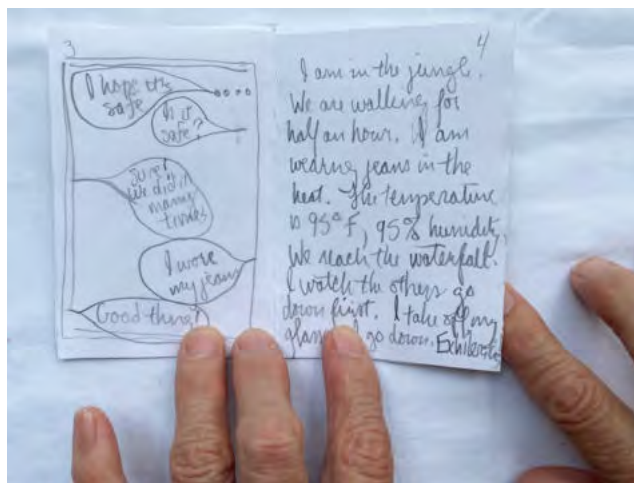 3
I hope it's
safe
Is it
safe?
Sure!
We did it
many
times
I wore
my jeans
Good thing!
4
I am in the jungle.
We are walking for
half an hour. I am
wearing jeans in the
heat. The temperature
is 95° F, 95% humidity.
We reach the waterfall.
I watch the others go
down first. I take off my
I go down.